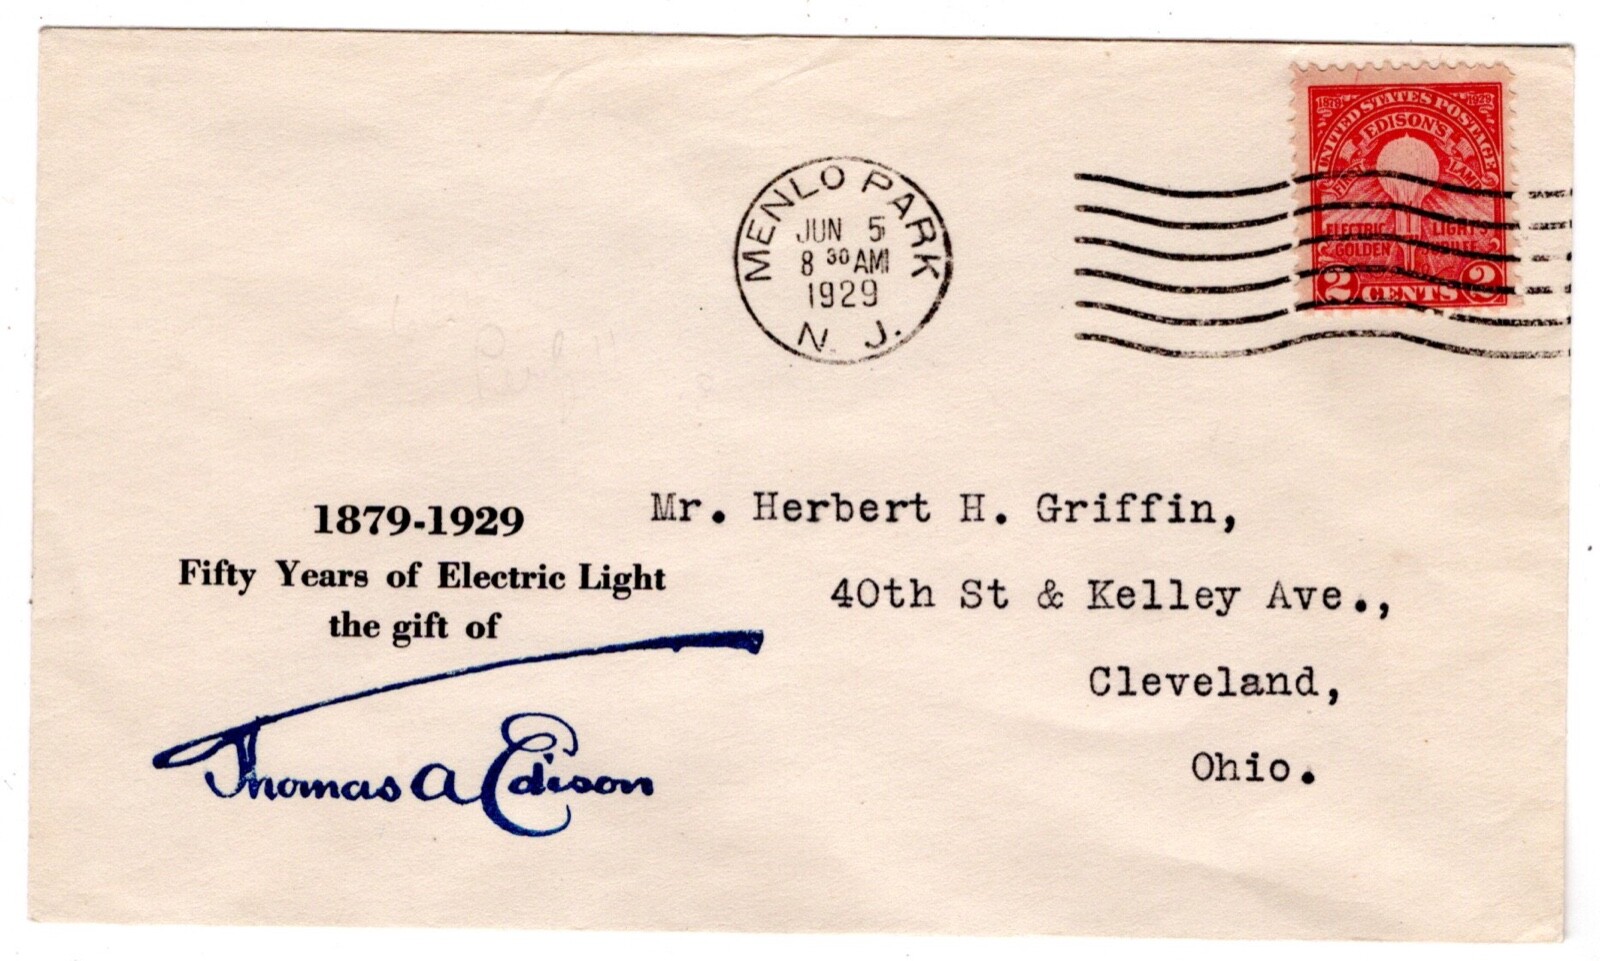 MENLO PARK
JUN 5
8 30 AM
1929
N. J.
1879 1929
UNITED STATES POSTAGE
EDISON'S
FIRST LAMP
ELECTRIC LIGHT'S
GOLDEN JUBILEE
2 CENTS 2
1879-1929
Fifty Years of Electric Light
the gift of
Thomas A Edison
Mr. Herbert H. Griffin,
40th St & Kelley Ave.,
Cleveland,
Ohio.